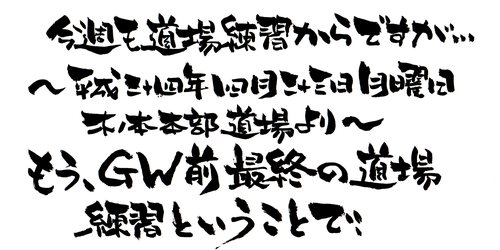 今週も道場練習からですが…
〜平成二十四年四月二十三日月曜日
木ノ本本部道場より〜
もう、GW前最終の道場
練習ということで…